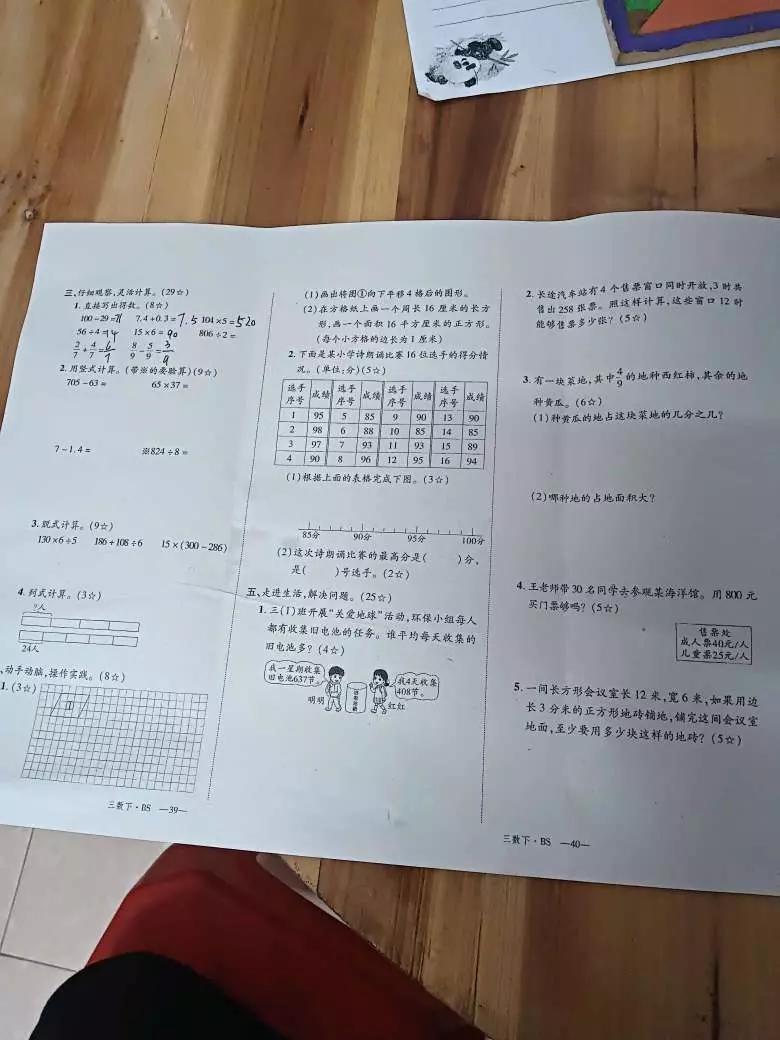 三、仔细观察,灵活计算。(29☆)
1. 直接写出得数。(8☆)
100-29=71 7.4+0.3=7.5 104×5=520
56÷4=14 15×6=90 806÷2=
2/7+4/7=6/7 8/9-5/9=3/9
2. 用竖式计算。(带※的要验算)(9☆)
705-63= 65×37=
7-1.4= ※824÷8=
3. 脱式计算。(9☆)
130×6÷5 186+108÷6 15×(300-286)
4. 列式计算。(3☆)
?人
24人
、动手动脑,操作实践。(8☆)
1. (3☆)
①
三数下·BS —39—
(1)画出将图①向下平移4格后的图形。
(2)在方格纸上画一个周长16厘米的长方
形,画一个面积16平方厘米的正方形。
(每个小方格的边长为1厘米)
2. 下面是某小学诗朗诵比赛16位选手的得分情
况。(单位:分)(5☆)
选手序号 成绩 选手序号 成绩 选手序号 成绩 选手序号 成绩
1 95 5 85 9 90 13 90
2 98 6 88 10 85 14 85
3 97 7 93 11 93 15 89
4 90 8 96 12 95 16 94
(1)根据上面的表格完成下图。(3☆)
85分 90分 95分 100分
(2)这次诗朗诵比赛的最高分是( )分,
是( )号选手。(2☆)
五、走进生活,解决问题。(25☆)
1. 三(1)班开展“关爱地球”活动,环保小组每人
都有收集旧电池的任务。谁平均每天收集的
旧电池多?(4☆)
我一星期收集
旧电池637节。
我4天收集
408节。
明明
红红
2. 长途汽车站有4个售票窗口同时开放,3时共
售出258张票。照这样计算,这些窗口12时
能够售票多少张?(5☆)
3. 有一块菜地,其中4/9的地种西红柿,其余的地
种黄瓜。(6☆)
(1)种黄瓜的地占这块菜地的几分之几?
(2)哪种地的占地面积大?
4. 王老师带30名同学去参观某海洋馆。用800元
买门票够吗?(5☆)
售票处
成人票40元/人
儿童票25元/人
5. 一间长方形会议室长12米,宽6米,如果用边
长3分米的正方形地砖铺地,铺完这间会议室
地面,至少要用多少块这样的地砖?(5☆)
三数下·BS —40—